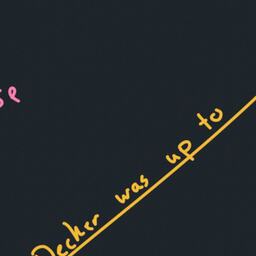 Decker was up to